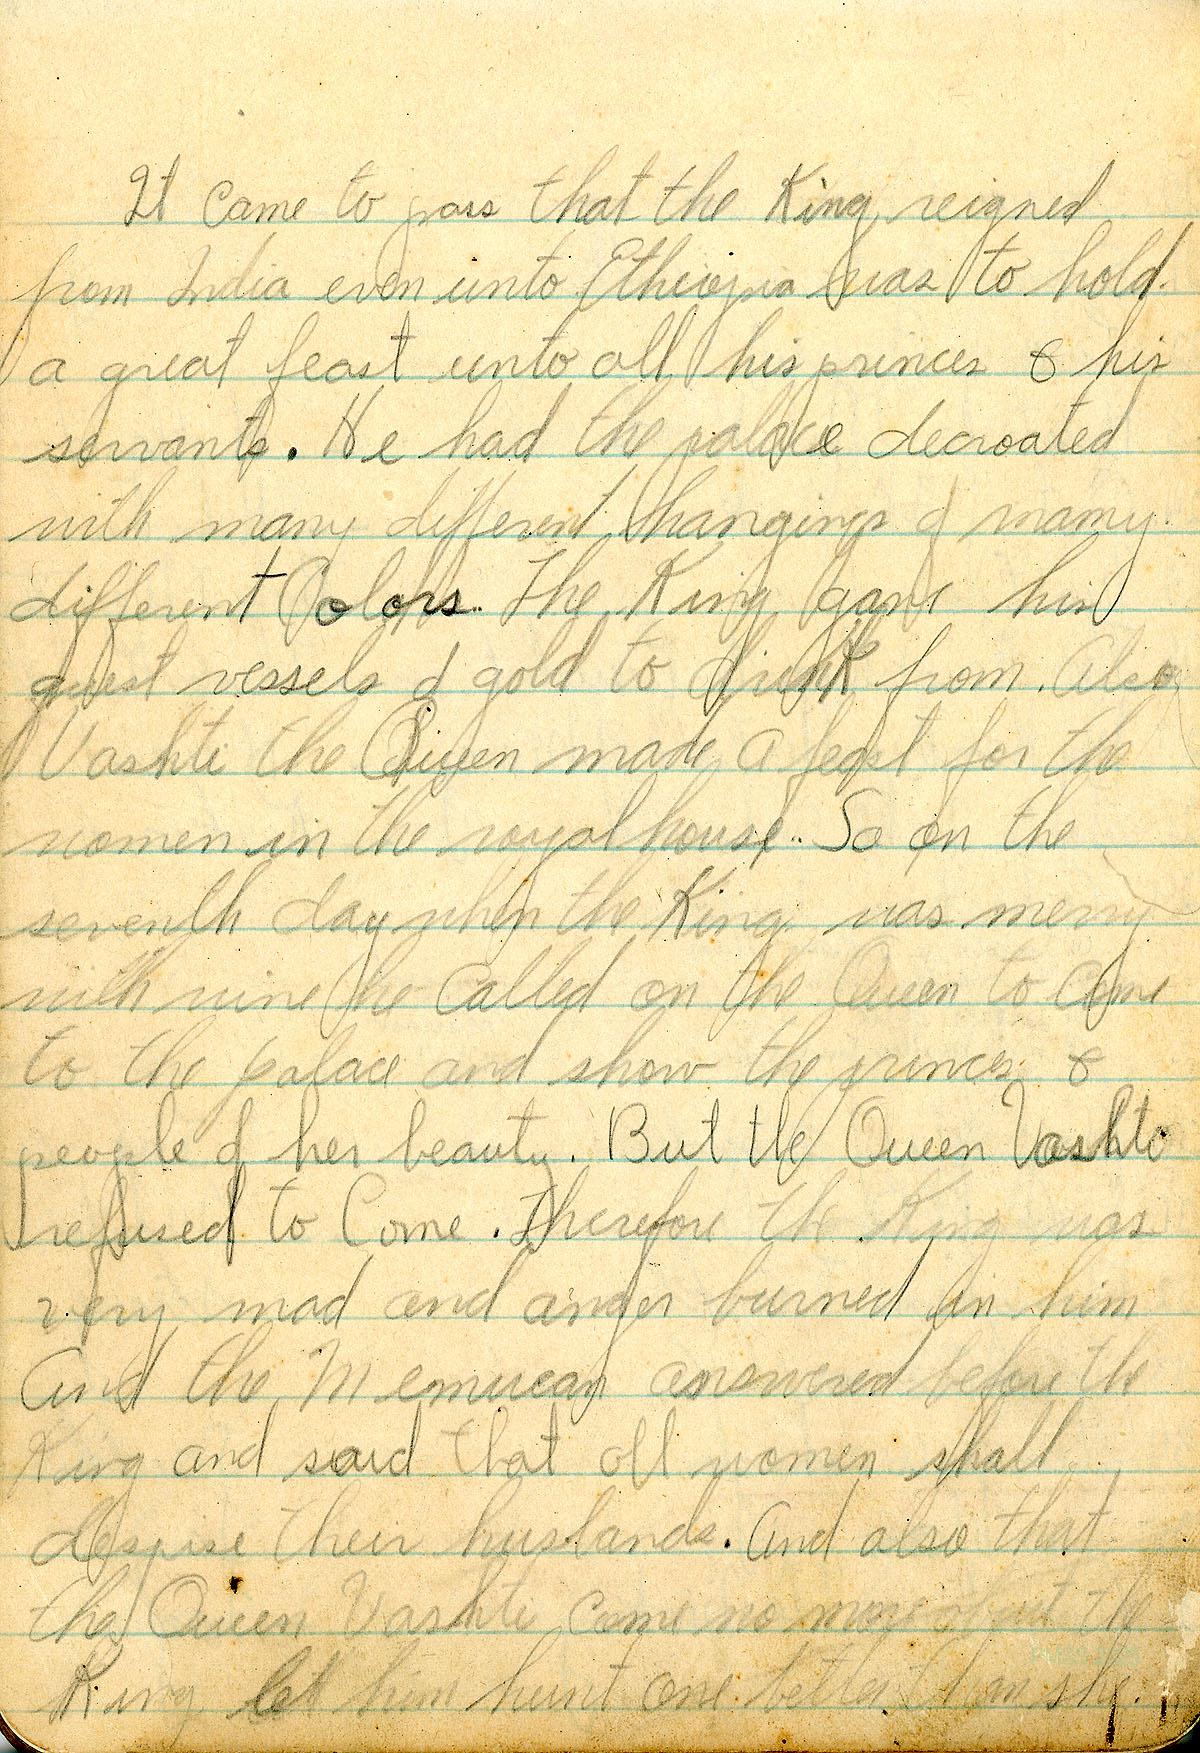 It came to pass that the King reigned
from India even unto Ethiopia was to hold
a great feast unto all his princes & his
servants. He had the palace decroated
with many different hangings of many
different Colors. The King gave his
guest vessels of gold to drink from. Also
Vashti the Queen made a feast for the
women in the royal house. So on the
seventh day when the King was merry
with wine he called on the Queen to come
to the palace and show the princes &
people of her beauty. But the Queen Vashti
refused to Come. Therefore the King was
very mad and anger burned in him
And the Memucan answered before the
King and said that all women shall
despise their husbands. And also that
the Queen Vashti come no more the
King let him hunt one better than she.